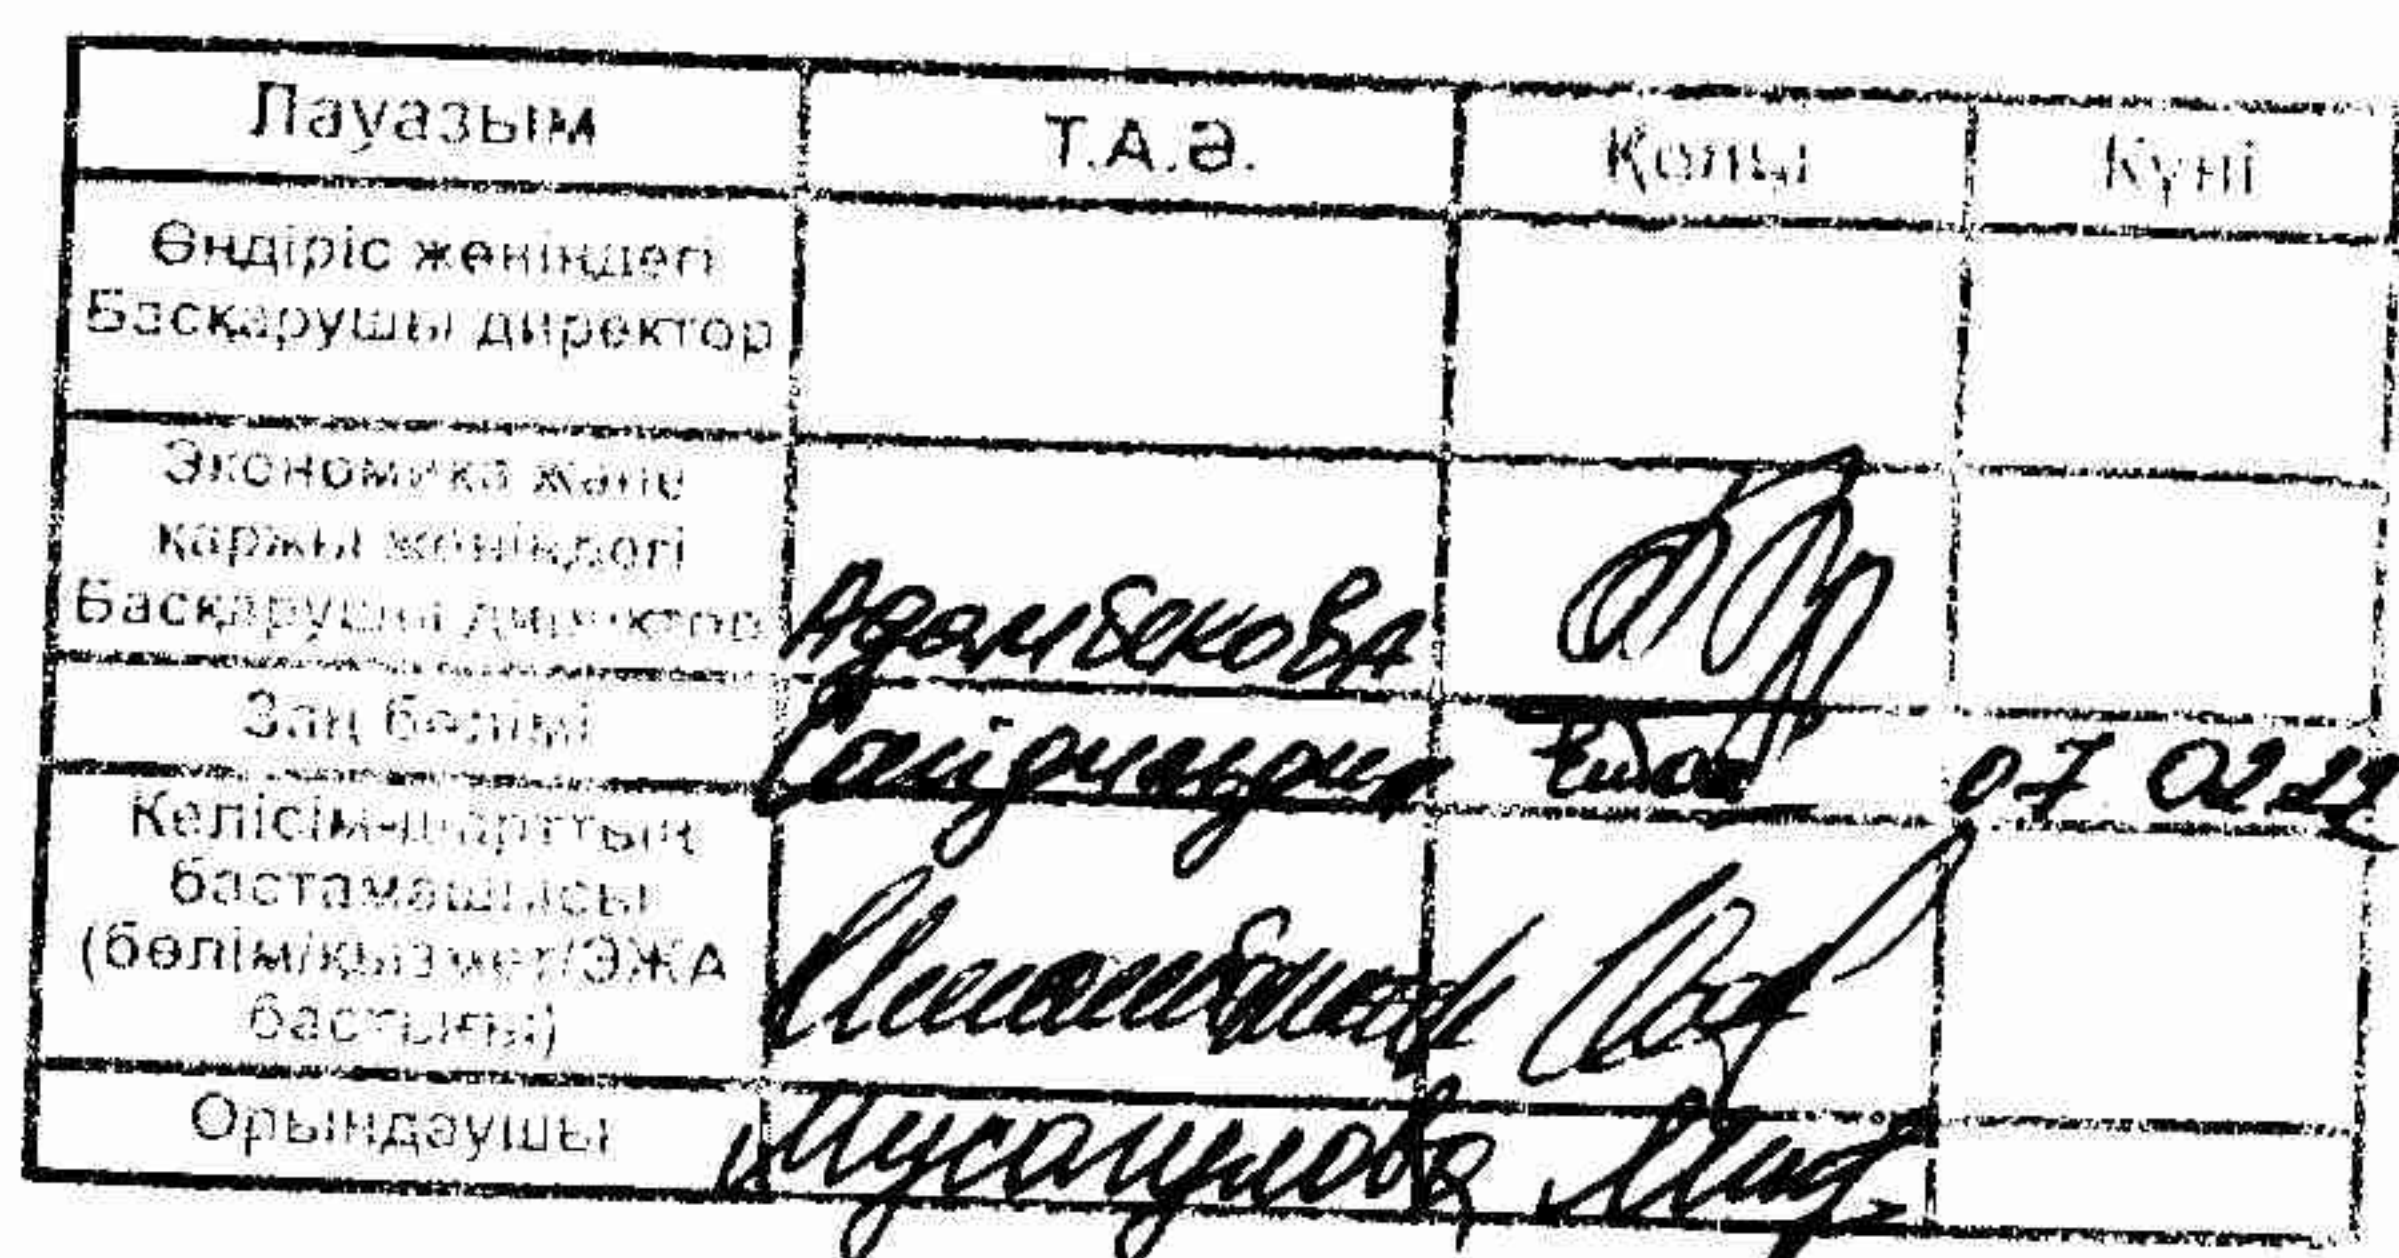 Лауазым Т.А.Ә. Қолы Күні
Өндіріс жөніндегі
Басқарушы директор
Экономика және
қаржы жөніндегі
Басқарушы директор Адамбекова
Заң бөлімі 07 02 22
Келісім-шарттың
бастамашысы
(бөлім/қызмет/ЭЖА
бастығы)
Орындаушы